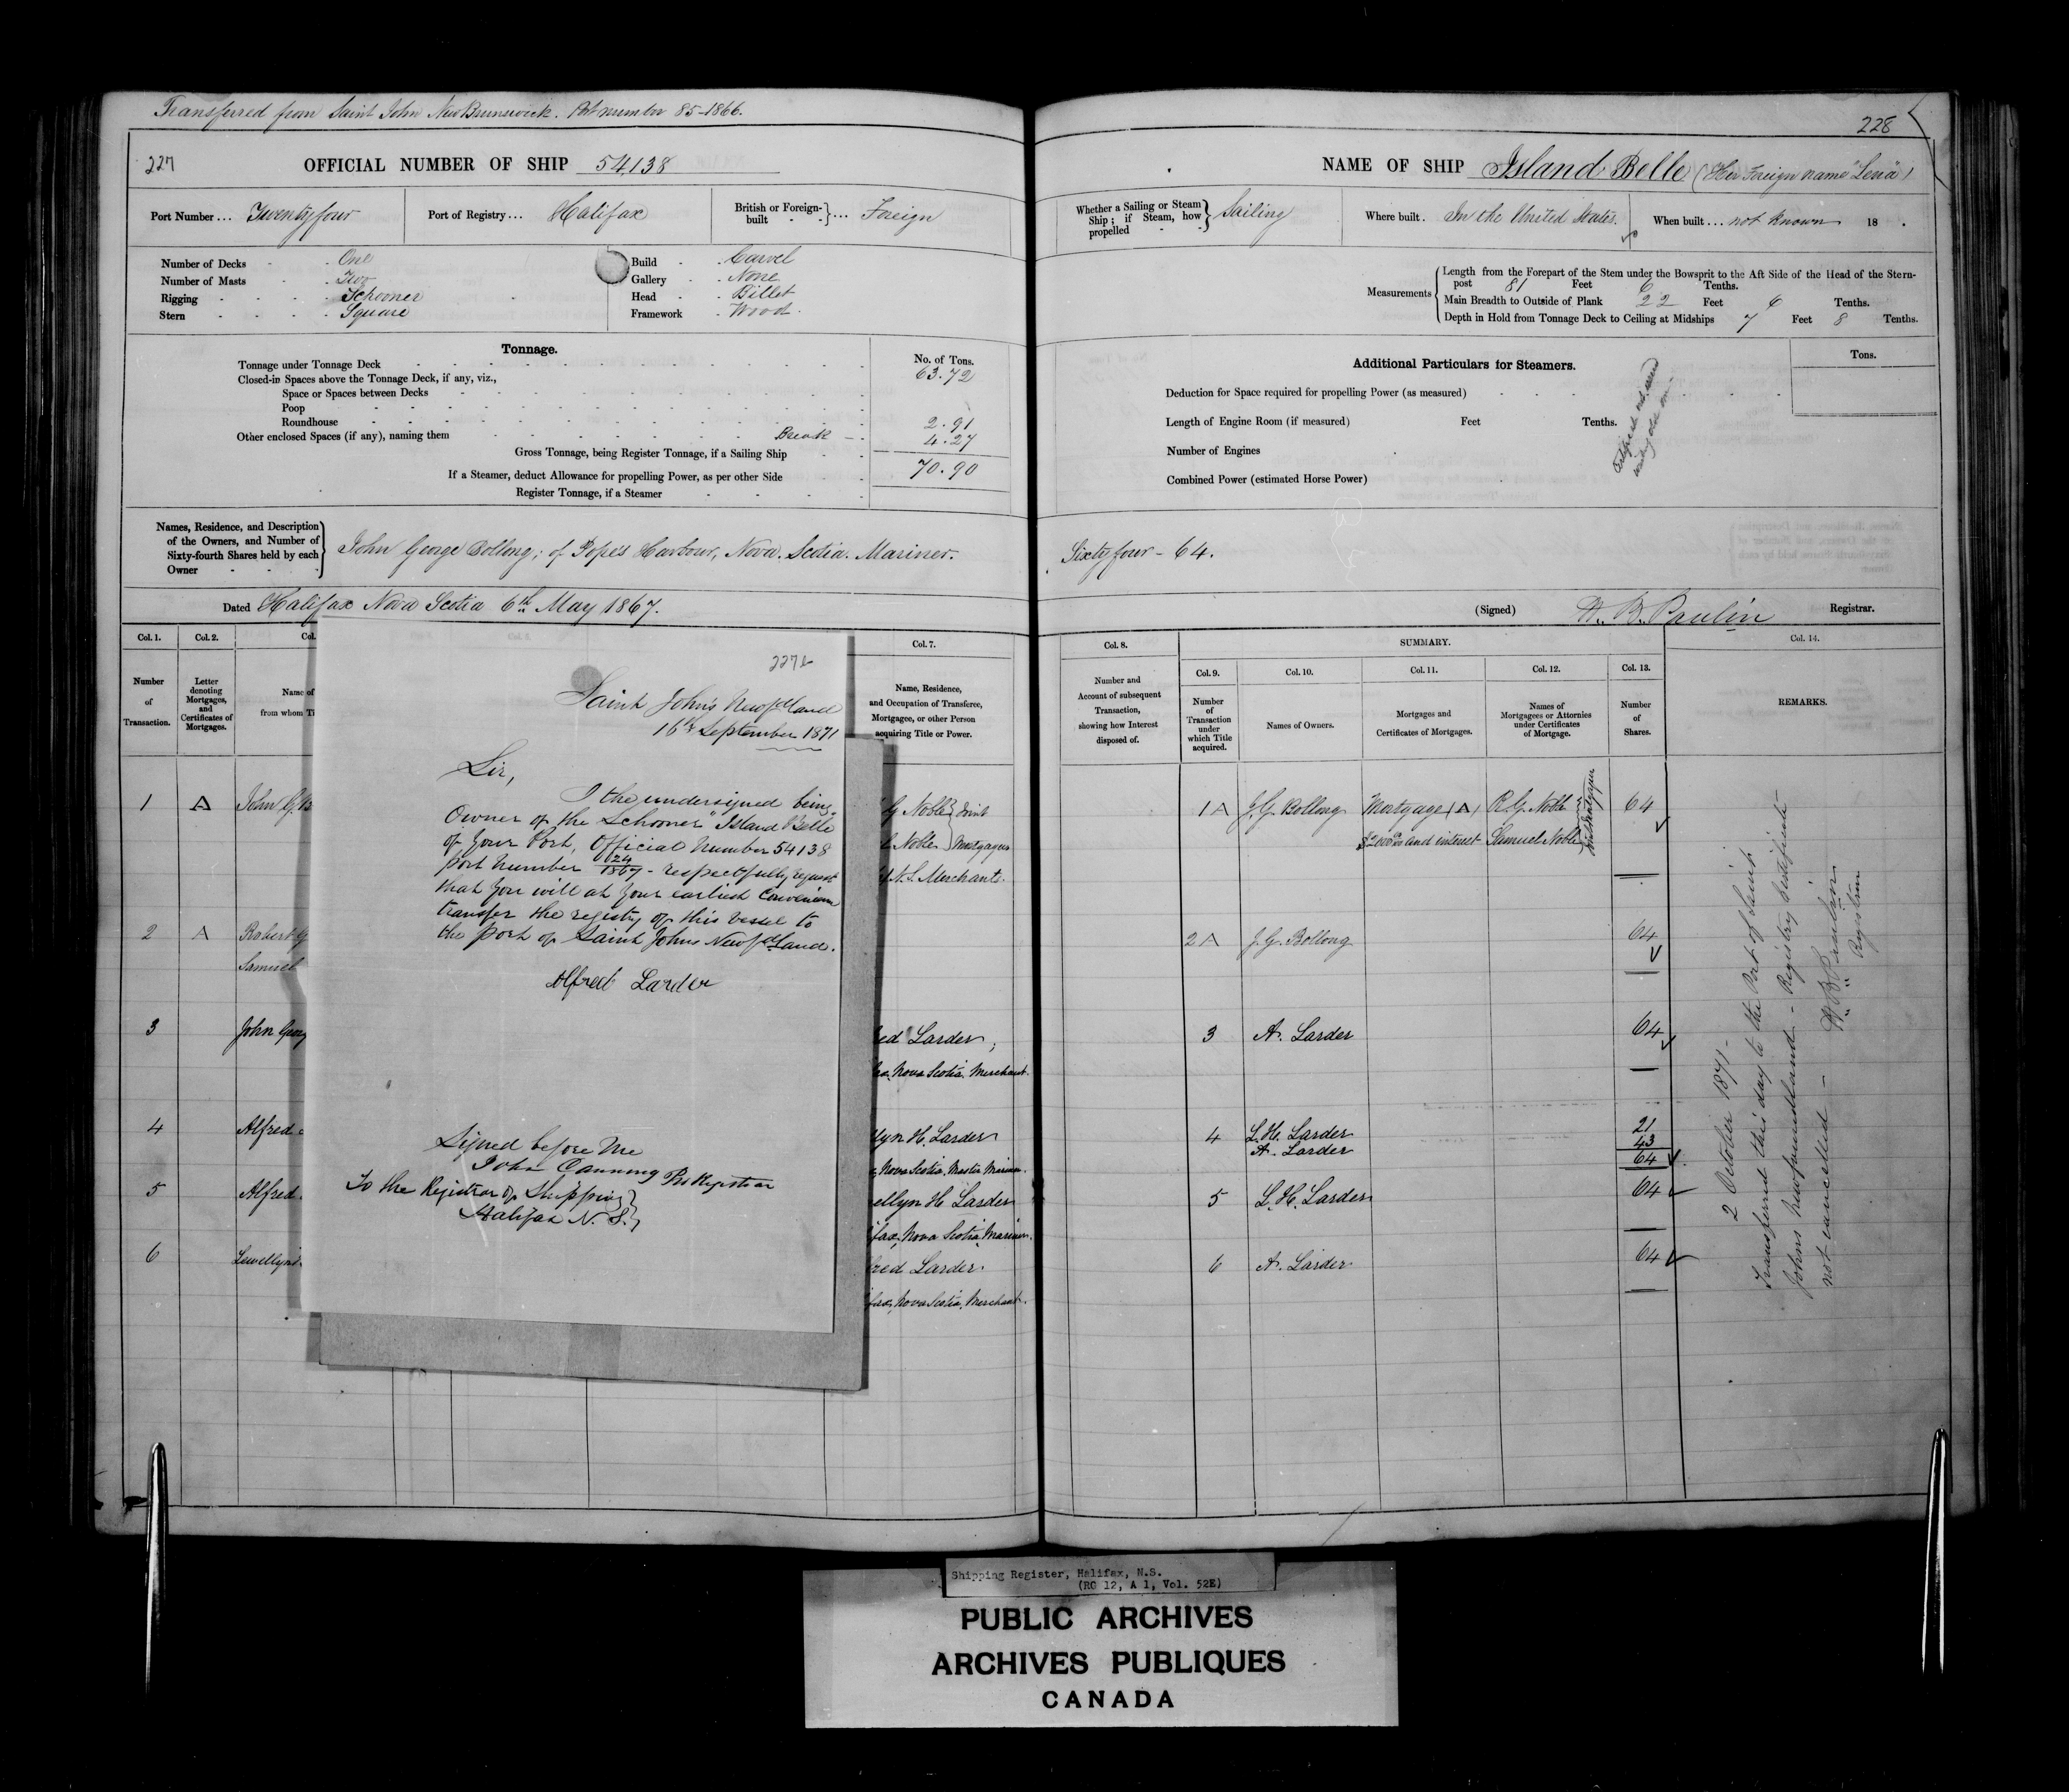 Transferred from Saint John New Brunswick. Port number 85-1866.
227
OFFICIAL NUMBER OF SHIP 54138
Port Number ... Twenty four
Port of Registry ... Halifax
British or Foreign-built ... Foreign
Number of Decks One
Number of Masts Two
Rigging Schooner
Stern Square
Build Carvel
Gallery None
Head Billet
Framework Wood.
Tonnage.
No. of Tons.
Tonnage under Tonnage Deck 63.72
Closed-in Spaces above the Tonnage Deck, if any, viz.,
Space or Spaces between Decks
Poop
Roundhouse 2.91
Other enclosed Spaces (if any), naming them Break 4.27
Gross Tonnage, being Register Tonnage, if a Sailing Ship 70.90
If a Steamer, deduct Allowance for propelling Power, as per other Side
Register Tonnage, if a Steamer
Names, Residence, and Description
of the Owners, and Number of
Sixty-fourth Shares held by each
Owner
John George Bollong; of Pope's Harbour, Nova Scotia. Mariner.
Dated Halifax Nova Scotia 6th May 1867.
Col. 1.
Number
of
Transaction.
Col. 2.
Letter
denoting
Mortgages,
and
Certificates of
Mortgages.
Col.
Name of
from whom Ti
Col. 7.
Name, Residence,
and Occupation of Transferee,
Mortgagee, or other Person
acquiring Title or Power.
1 A John G. B
G Noble } Joint
Noble } Mortgagees
N.S. Merchants.
2 A Robert G
Samuel
3 John Georg
ed Larder;
Nova Scotia. Merchant.
4 Alfred
lyn H. Larder
Nova Scotia, Master Mariner.
5 Alfred
ellyn H Larder
fax, Nova Scotia, Mariner.
6 Lewellyn
red Larder.
fax, Nova Scotia, Merchant.
Saint John's Newfdland
16th September 1871
Sir,
I the undersigned being
Owner of the Schooner "Island Belle"
of your Port, Official Number 54138
port number 24/1867 - respectfully request
that you will at your earliest convenience
transfer the registry of this vessel to
the port of Saint Johns Newfdland.
Alfred Larder
Signed before Me
John Canning
To the Registrar of Shipping }
Halifax N. S. }
228
NAME OF SHIP Island Belle (Her Foreign name "Lena")
Whether a Sailing or Steam
Ship; if Steam, how
propelled
Sailing
Where built. In the United States.
When built ... not known 18 .
Measurements
Length from the Forepart of the Stem under the Bowsprit to the Aft Side of the Head of the Stern-
post 81 Feet 6 Tenths.
Main Breadth to Outside of Plank 22 Feet 6 Tenths.
Depth in Hold from Tonnage Deck to Ceiling at Midships 7 Feet 8 Tenths.
Additional Particulars for Steamers.
Tons.
Deduction for Space required for propelling Power (as measured)
Length of Engine Room (if measured) Feet Tenths.
Number of Engines
Combined Power (estimated Horse Power)
Sixty four - 64.
(Signed) W. B. Paulin Registrar.
Col. 8.
Number and
Account of subsequent
Transaction,
showing how Interest
disposed of.
SUMMARY.
Col. 9.
Number
of
Transaction
under
which Title
acquired.
Col. 10.
Names of Owners.
Col. 11.
Mortgages and
Certificates of Mortgages.
Col. 12.
Names of
Mortgagees or Attornies
under Certificates
of Mortgage.
Col. 13.
Number
of
Shares.
Col. 14.
REMARKS.
1 A J. G. Bollong Mortgage (A) R. G. Noble 64
$2000 and interest Samuel Noble
Joint Mortgagees
2 A J. G. Bollong 64
3 A. Larder 64
4 L. H. Larder 21
A. Larder 43
64
5 L. H. Larder 64
6 A. Larder 64
2 October 1871 -
Transferred this day to the Port of Saint
Johns Newfoundland - Registry Certificate
not cancelled -
W. B. Paulin
Registrar
Shipping Register, Halifax, N.S.
(RG 12, A 1, Vol. 52E)
PUBLIC ARCHIVES
ARCHIVES PUBLIQUES
CANADA